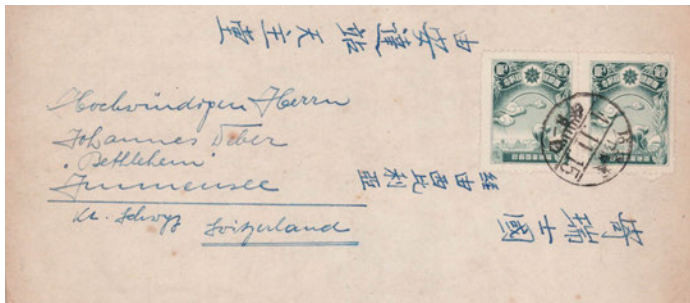 由安達站天主堂
Hochwürdigen Herrn
Johannes Weber
"Bethlehem"
Immensee
Kt. Schwyz Switzerland
經由西比利亞
寄瑞士國